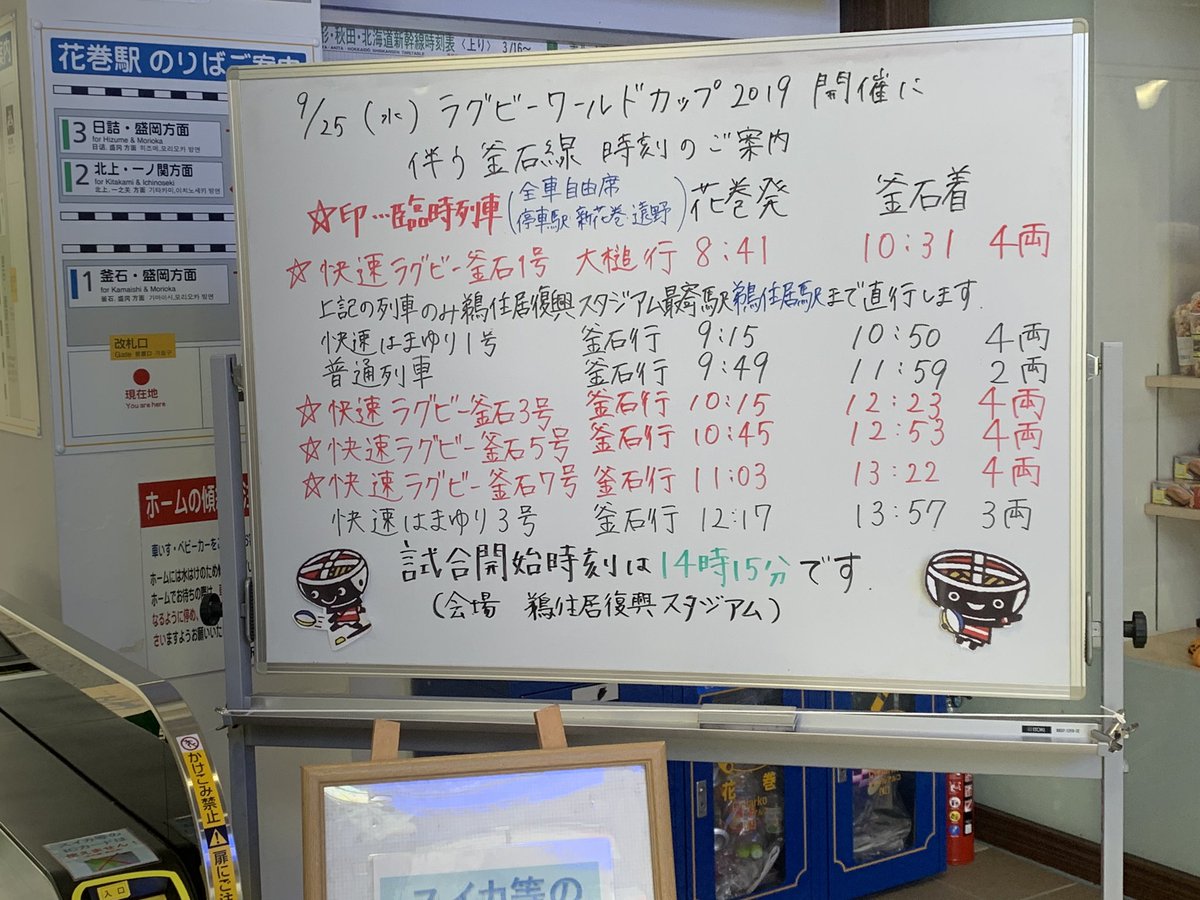 彰・秋田・北海道新幹線時刻表 〈上り〉 3/16〜
花巻駅 のりばご案内
3 日詰・盛岡方面
for Hizume & Morioka
2 北上・一ノ関方面
for Kitakami & Ichinoseki
1 釜石・盛岡方面
for Kamaishi & Morioka
改札口
Gate
現在地
You are here
9/25 (水) ラグビーワールドカップ2019 開催に
伴う釜石線 時刻のご案内
☆印…臨時列車 (全車自由席 停車駅 新花巻 遠野) 花巻発 釜石着
☆快速ラグビー釜石1号 大槌行 8:41 10:31 4両
上記の列車のみ鵜住居復興スタジアム最寄駅鵜住居駅まで直行します.
快速はまゆり1号 釜石行 9:15 10:50 4両
普通列車 釜石行 9:49 11:59 2両
☆快速ラグビー釜石3号 釜石行 10:15 12:23 4両
☆快速ラグビー釜石5号 釜石行 10:45 12:53 4両
☆快速ラグビー釜石7号 釜石行 11:03 13:22 4両
快速はまゆり3号 釜石行 12:17 13:57 3両
試合開始時刻は14時15分です
(会場 鵜住居復興スタジアム)
ホームの傾
車いす・ベビーカーを
ホームには水はけのため
ホームでお待ちの際は
なるように停め、
さいますようお願いいた
かけこみ禁止
扉にご注
入口
花巻
スイカ等の